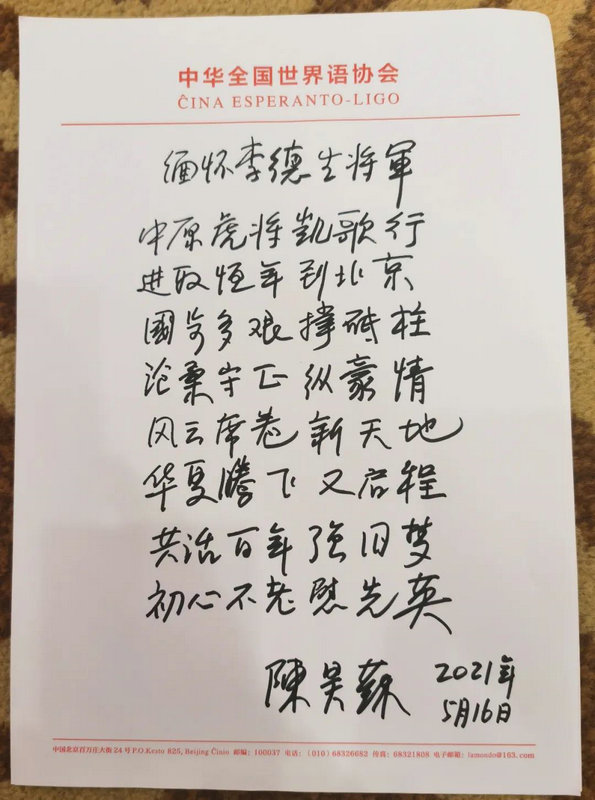 中华全国世界语协会
ĈINA ESPERANTO-LIGO
缅怀李德生将軍
中原虎将凯歌行
进取恒年到北京
國步多艰撑砥柱
沧桑守正纵豪情
风云席卷新天地
华夏腾飞又启程
共话百年强旧梦
初心不老慰先英
陳昊蘇 2021年
5月16日
中国北京百万庄大街24号 P.O.Kesto 825, Beijing Ĉinio 邮编：100037 电话：(010) 68326682 传真：68321808 电子邮箱：lamondo@163.com